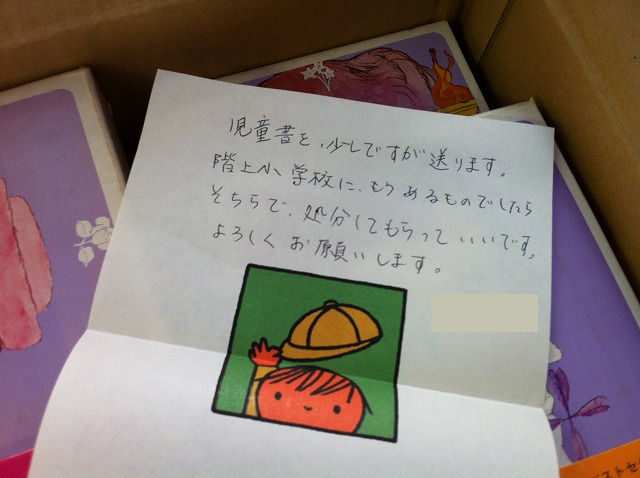 児童書を、少しですが送ります。
階上小学校に、もうあるものでしたら
そちらで、処分してもらっていいです。
よろしくお願いします。
ベストセ